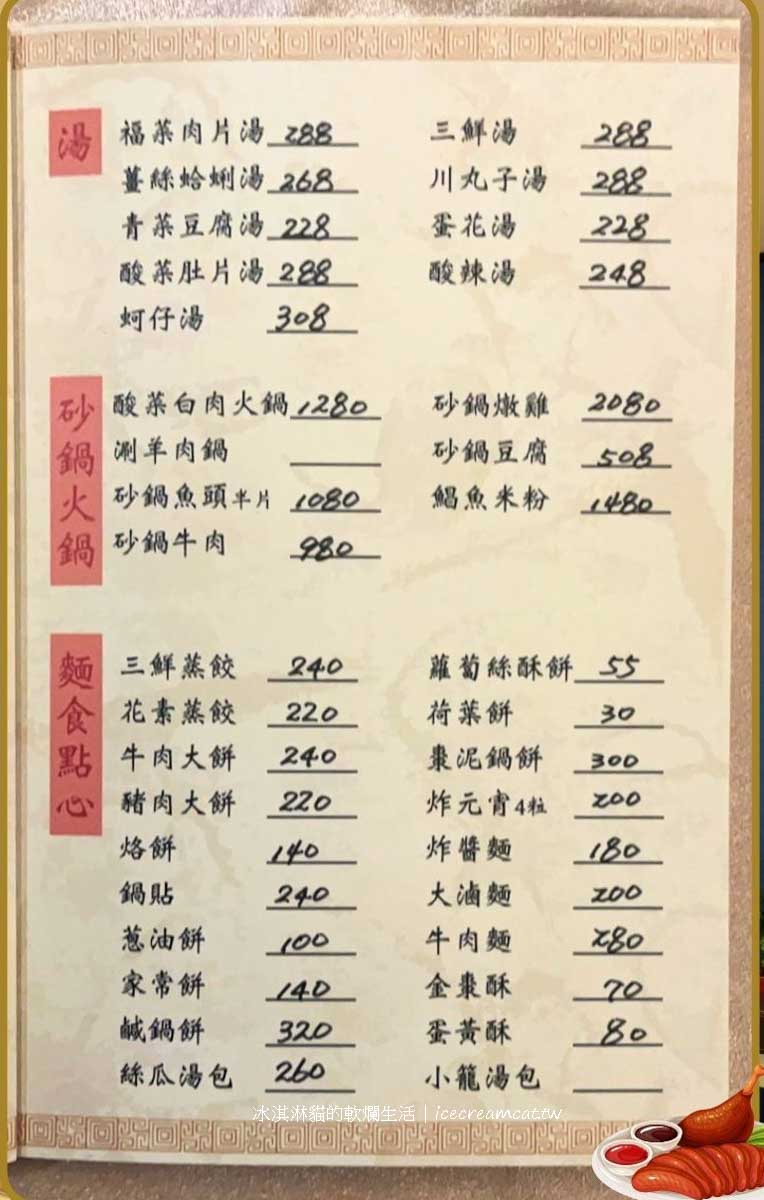 湯
福菜肉片湯 288
薑絲蛤蜊湯 268
青菜豆腐湯 228
酸菜肚片湯 288
蚵仔湯 308
三鮮湯 288
川丸子湯 288
蛋花湯 228
酸辣湯 248
砂鍋火鍋
酸菜白肉火鍋 1280
涮羊肉鍋
砂鍋魚頭半片 1080
砂鍋牛肉 980
砂鍋燉雞 2080
砂鍋豆腐 508
鯧魚米粉 1480
麵食點心
三鮮蒸餃 240
花素蒸餃 220
牛肉大餅 240
豬肉大餅 220
烙餅 140
鍋貼 240
蔥油餅 100
家常餅 140
鹹鍋餅 320
絲瓜湯包 260
蘿蔔絲酥餅 55
荷葉餅 30
棗泥鍋餅 300
炸元宵4粒 200
炸醬麵 180
大滷麵 200
牛肉麵 280
金棗酥 70
蛋黃酥 80
小籠湯包
冰淇淋貓的軟爛生活｜icecreamcat.tw